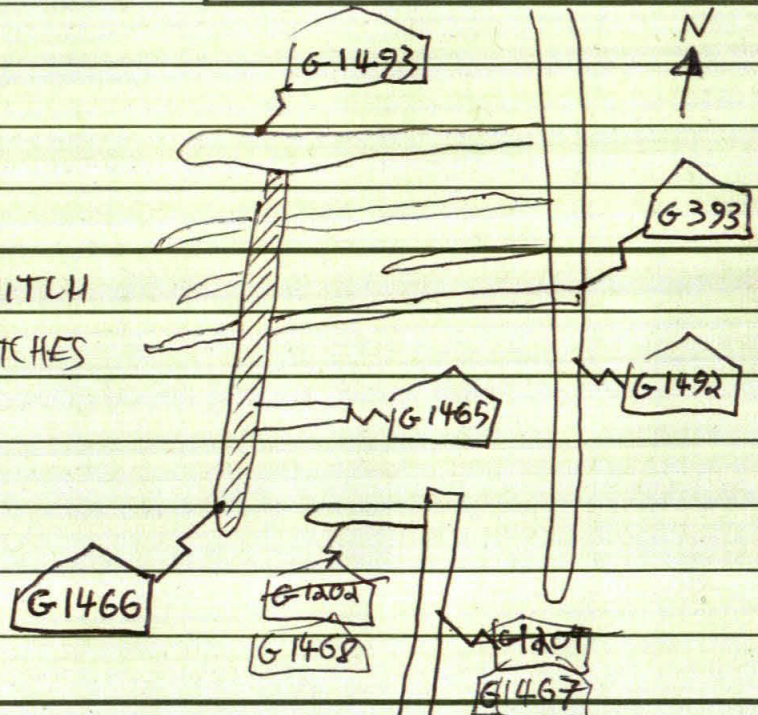 G1493
N
G393
ITCH
TCHES
G1492
G1465
G1466
G1202
G1468
G1467